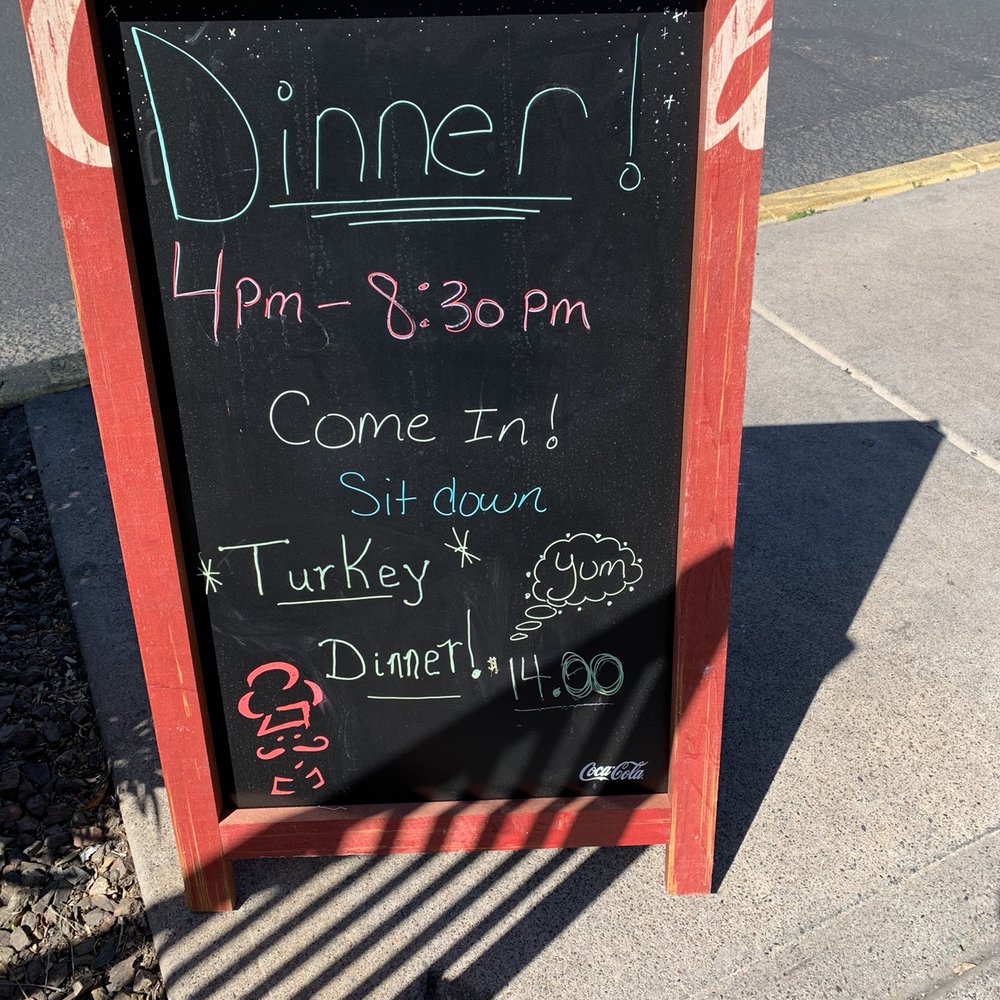 Dinner!
4pm - 8:30pm
Come In!
Sit down
*Turkey*
Yum
Dinner! $14.00
Coca-Cola